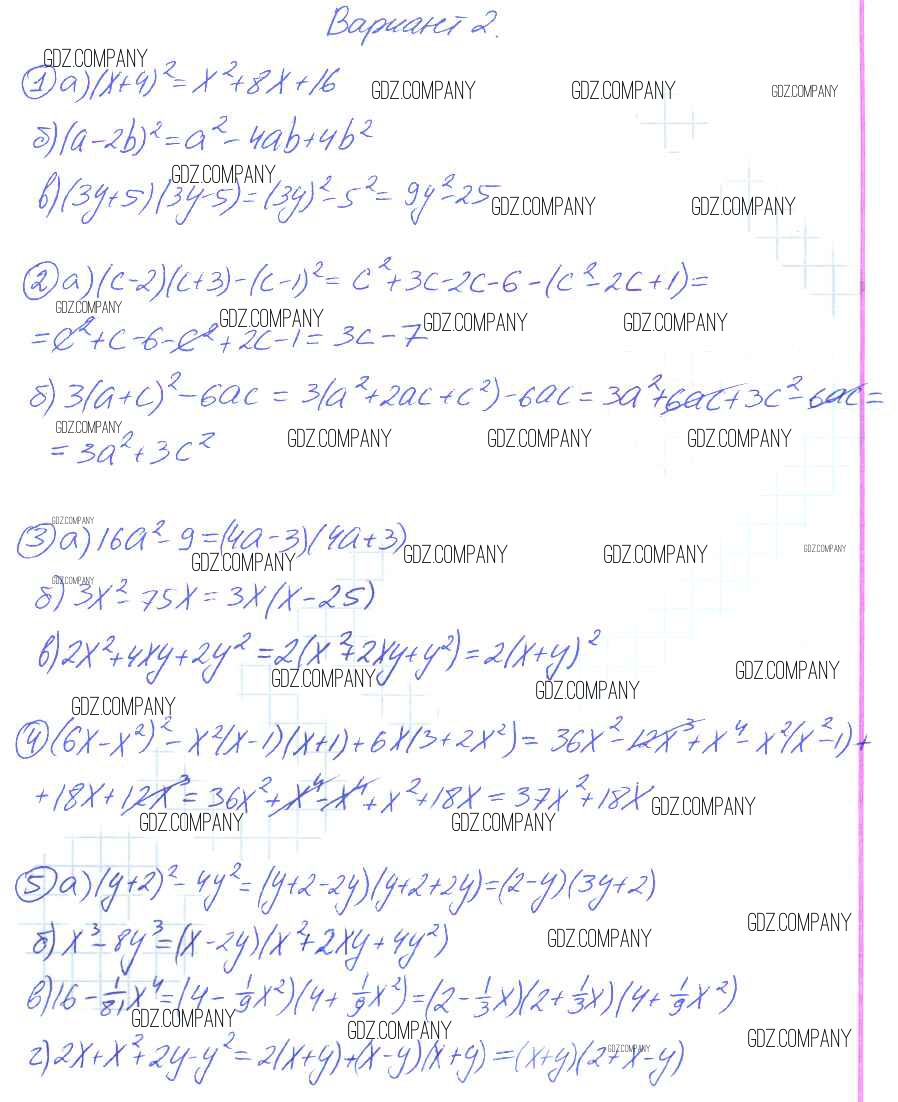 Вариант 2.
GDZ.COMPANY
① а) (x+4)² = x² + 8x + 16
GDZ.COMPANY GDZ.COMPANY GDZ.COMPANY
б) (a-2b)² = a² - 4ab + 4b²
GDZ.COMPANY
в) (3y+5)(3y-5) = (3y)² - 5² = 9y² - 25
GDZ.COMPANY GDZ.COMPANY
② а) (c-2)(c+3) - (c-1)² = c² + 3c - 2c - 6 - (c² - 2c + 1) =
GDZ.COMPANY GDZ.COMPANY GDZ.COMPANY GDZ.COMPANY
= c² + c - 6 - c² + 2c - 1 = 3c - 7
б) 3(a+c)² - 6ac = 3(a² + 2ac + c²) - 6ac = 3a² + 6ac + 3c² - 6ac =
GDZ.COMPANY GDZ.COMPANY GDZ.COMPANY GDZ.COMPANY
= 3a² + 3c²
GDZ.COMPANY
③ а) 16a² - 9 = (4a-3)(4a+3)
GDZ.COMPANY GDZ.COMPANY GDZ.COMPANY GDZ.COMPANY
GDZ.COMPANY
б) 3x² - 75x = 3x(x-25)
в) 2x² + 4xy + 2y² = 2(x² + 2xy + y²) = 2(x+y)²
GDZ.COMPANY GDZ.COMPANY GDZ.COMPANY
GDZ.COMPANY
④ (6x-x²)² - x²(x-1)(x+1) + 6x(3+2x²) = 36x² - 12x³ + x⁴ - x²(x²-1) +
+ 18x + 12x³ = 36x² + x⁴ - x⁴ + x² + 18x = 37x² + 18x
GDZ.COMPANY
GDZ.COMPANY GDZ.COMPANY
⑤ а) (y+2)² - 4y² = (y+2-2y)(y+2+2y) = (2-y)(3y+2)
GDZ.COMPANY
б) x³ - 8y³ = (x-2y)(x² + 2xy + 4y²)
GDZ.COMPANY
в) 16 - 1/81x⁴ = (4 - 1/9x²)(4 + 1/9x²) = (2 - 1/3x)(2 + 1/3x)(4 + 1/9x²)
GDZ.COMPANY GDZ.COMPANY GDZ.COMPANY
г) 2x + x² + 2y - y² = 2(x+y) + (x-y)(x+y) = (x+y)(2+x-y)
GDZ.COMPANY